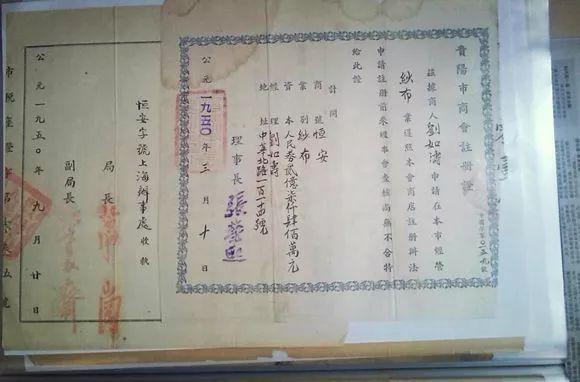 貴陽市商會註冊證
茲據商人劉如濤申請在本市經營
紗布業遵照本會商店註冊辦法
申請註冊前來經理事會查核尚無不合特
給此證
計開
商號恒安
業別紗布
資本人民券貳億柒仟肆佰萬元
經理劉如濤
地址中華北路一百一十四號
理事長張榮熙
公元一九五〇年三月十日
恒安字號上海辦事處收款
局長
副局長
公元一九五〇年九月廿日